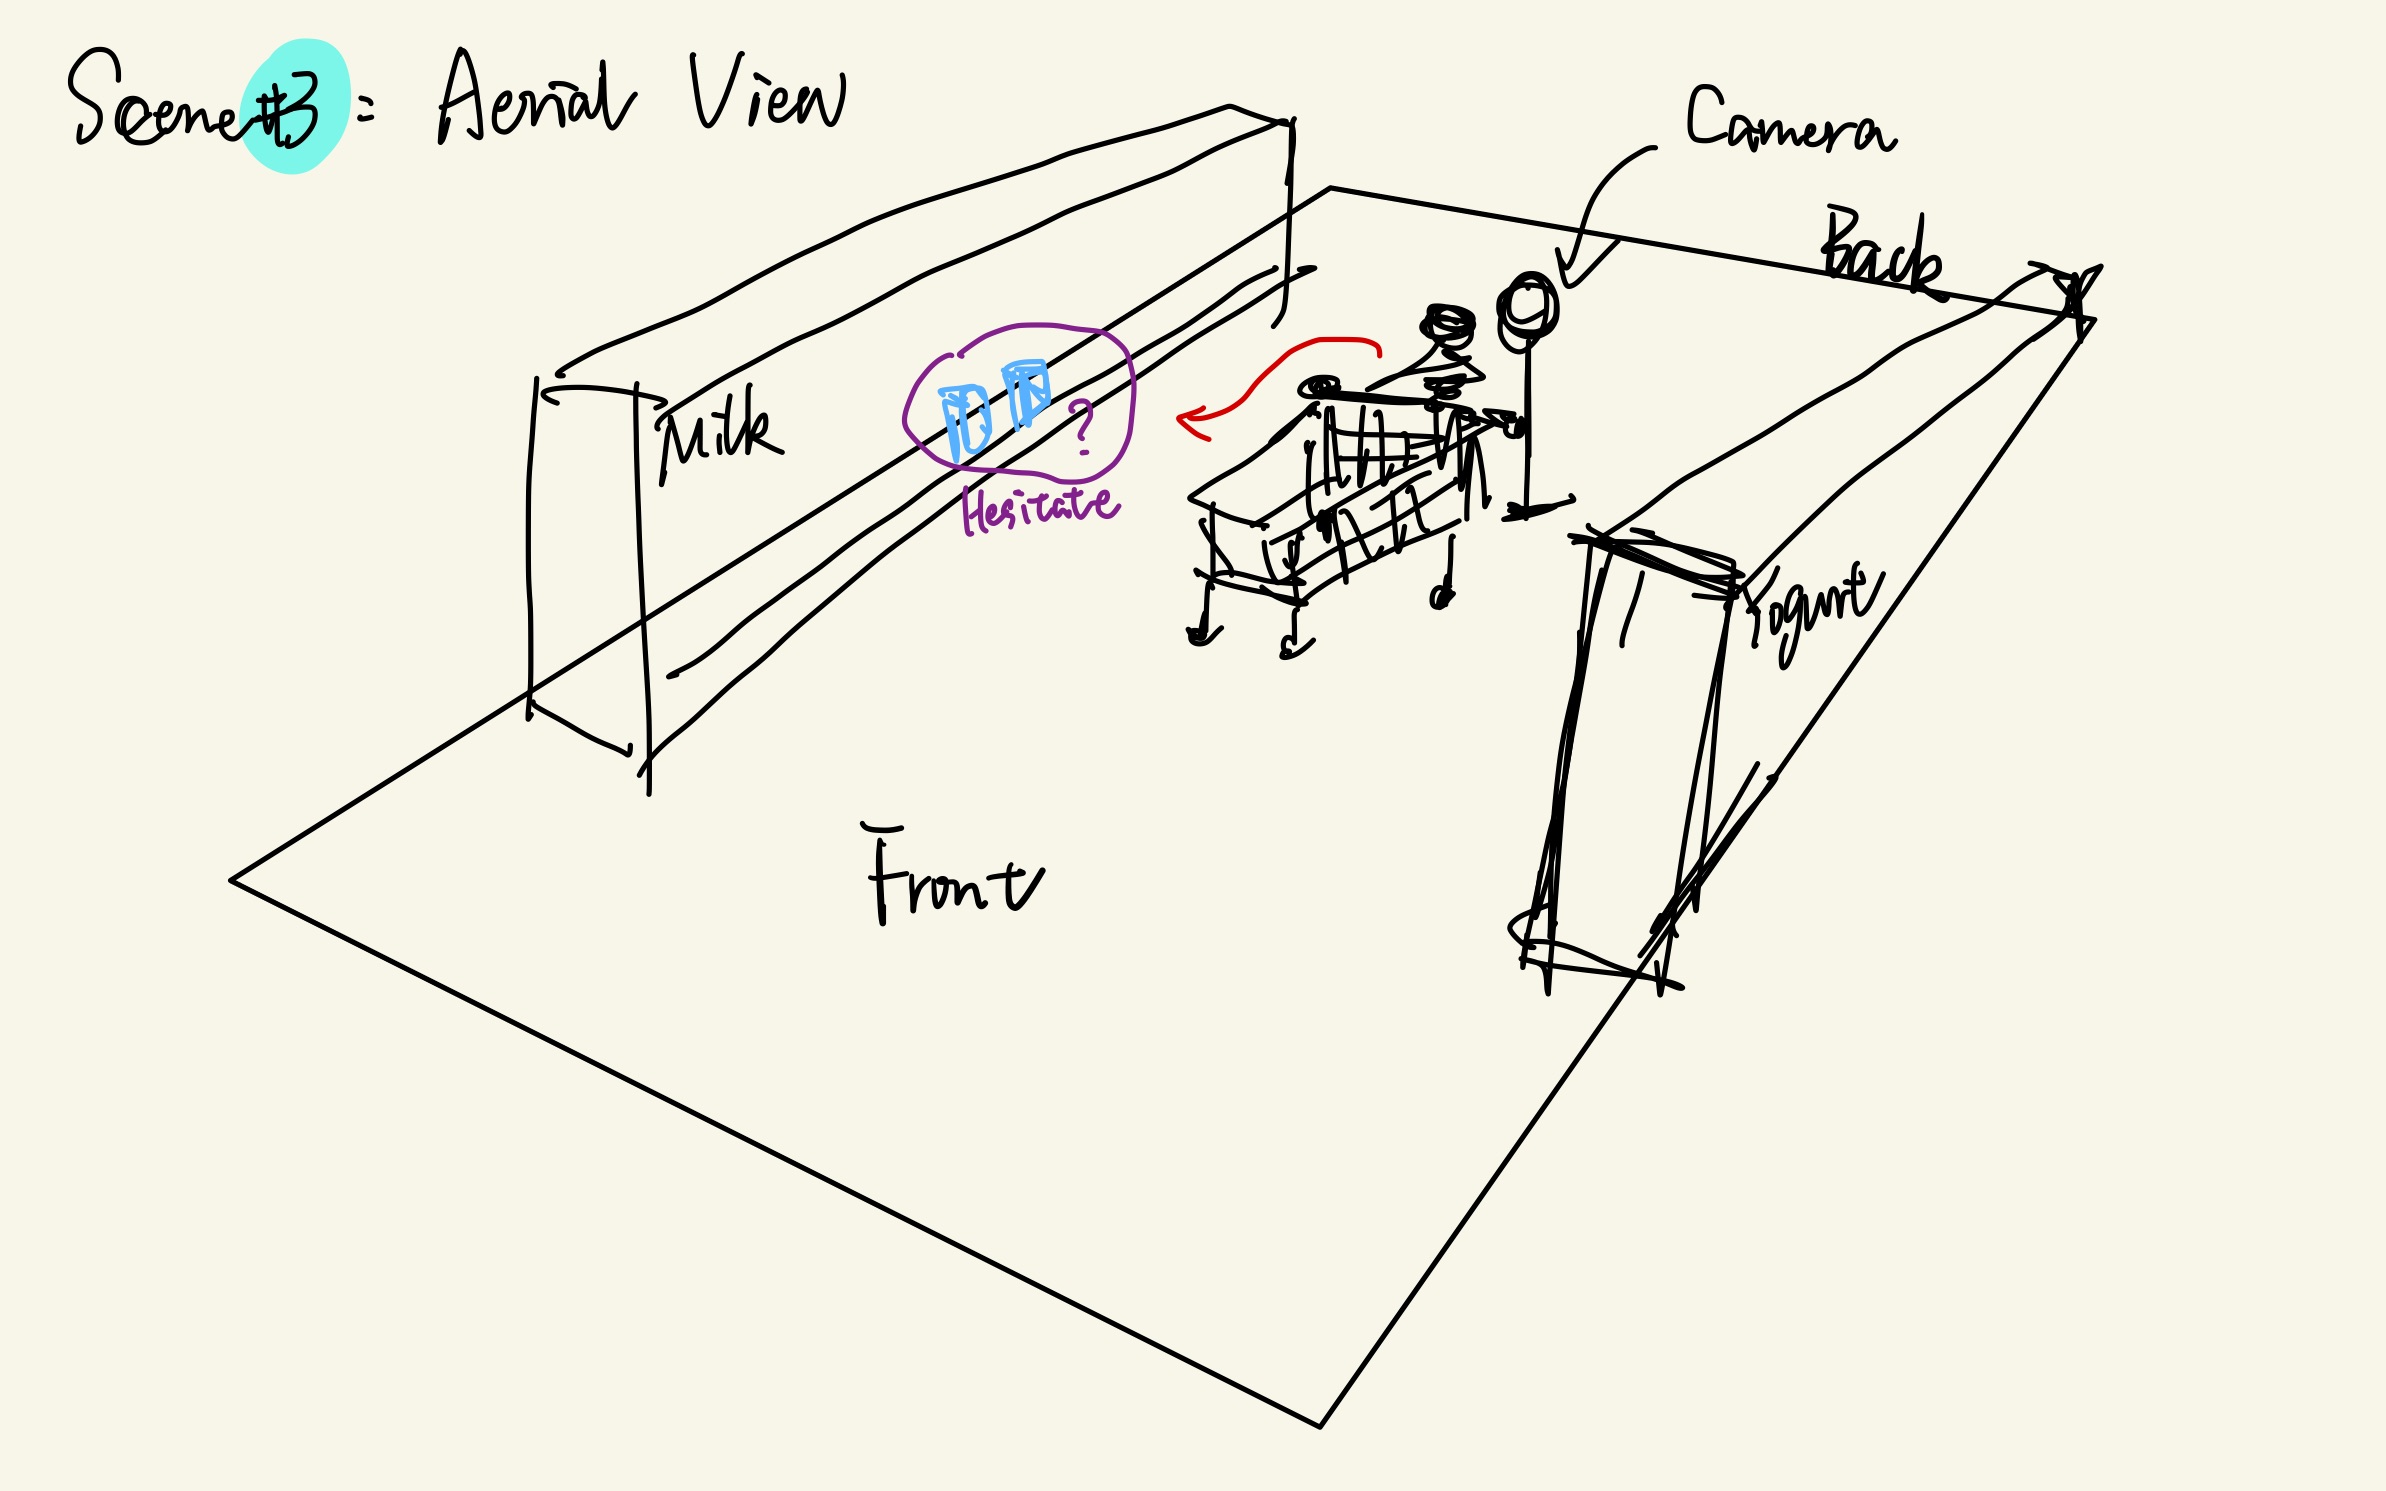 Scene #3 : Aerial View
Camera
Back
Milk
?
Hesitate
Yogurt
Front